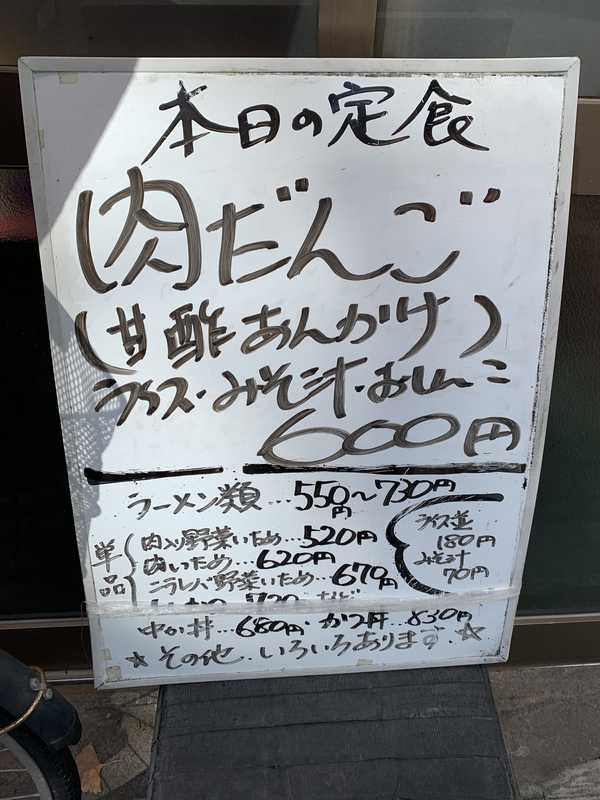 本日の定食
肉だんご
(甘酢あんかけ)
ライス・みそ汁・おしんこ
600円
ラーメン類…550円〜730円
単品
肉入り野菜いため…520円
肉いため…620円
ニラレバ野菜いため…670円
ライス並
180円
みそ汁
70円
中か丼…680円・かつ丼…830円
☆その他、いろいろあります。☆